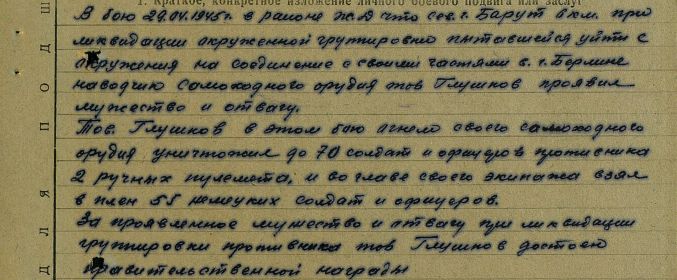 1. Краткое, конкретное изложение личного боевого подвига или заслуг
В бою 29.04.1945г. в районе ж.д что сев. г. Барут 8 км. при
ликвидации окруженной группировки пытавшейся уйти с
окружения на соединение с своими частями в г. Берлине
наводчик самоходного орудия тов Глушков проявил
мужество и отвагу.
Тов. Глушков в этом бою огнем своего самоходного
орудия уничтожил до 70 солдат и офицеров противника
2 ручных пулемета, и во главе своего экипажа взял
в плен 55 немецких солдат и офицеров.
За проявленное мужество и отвагу при ликвидации
группировки противника тов Глушков достоен
правительственной награды
ДЛЯ ПОДШ